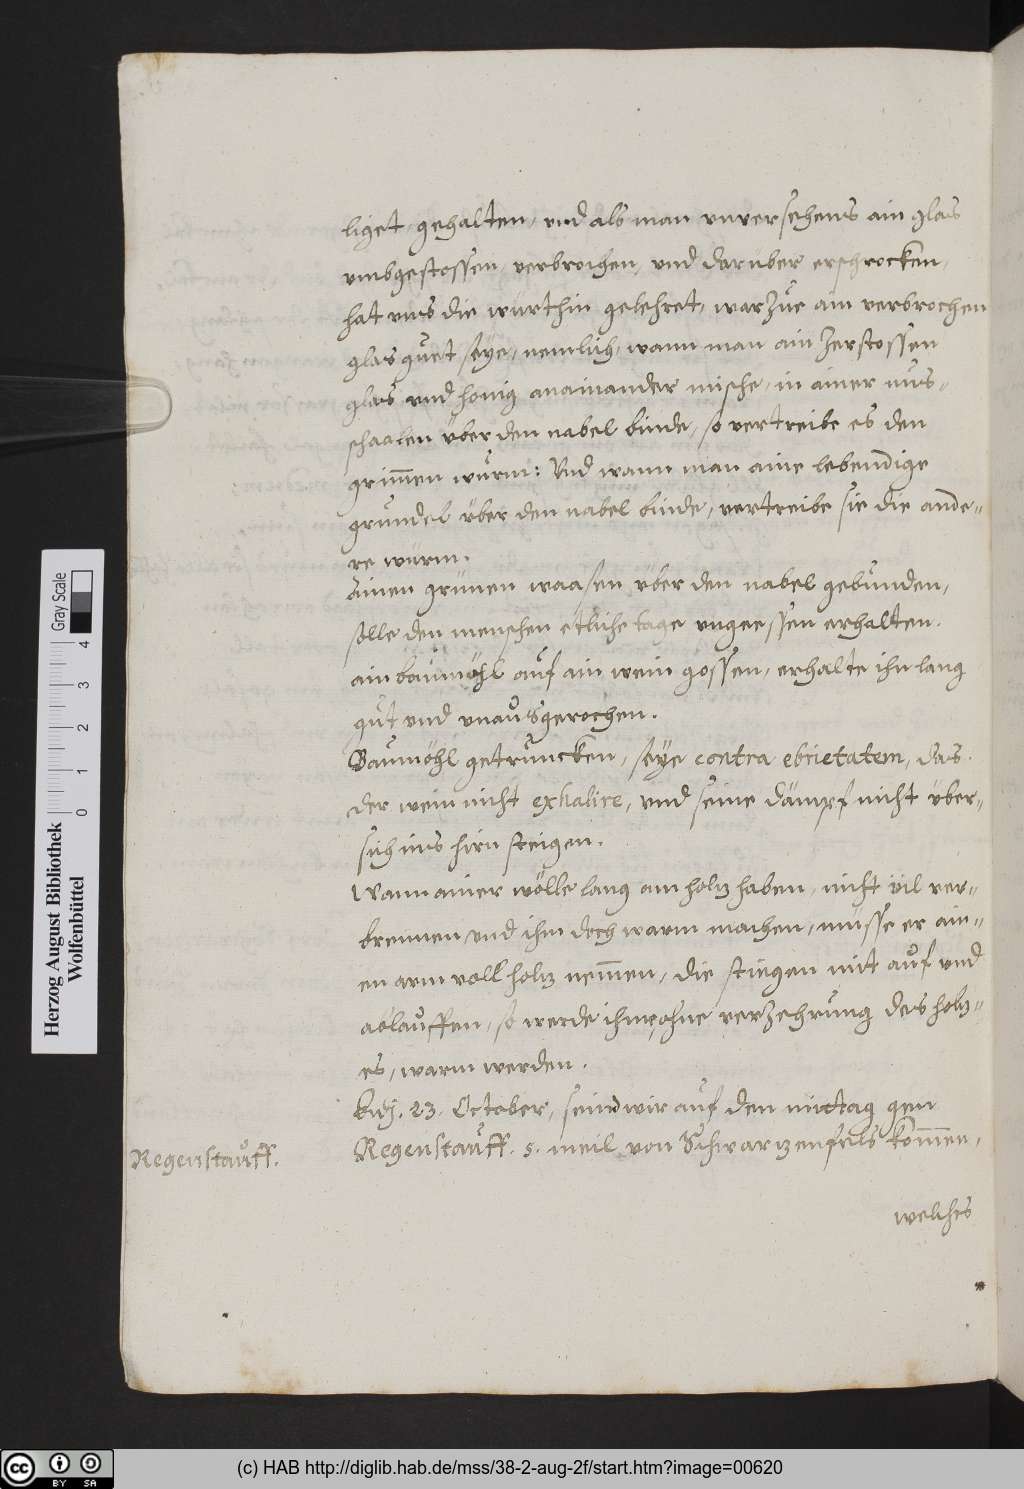 liget, gehalten, vnd als man vnversehens ain glas
vmbgestossen, verbrochen, vnd darüber erschrocken,
hat vns die würthin gelehret, warzue ain verbrochen
glas guet seye, nemlich, wann man ain zerstossen
glas vnd honig anainander mische, in ainer nus-
schaalen über den nabel binde, so vertreibe es den
grim̅en wurm: Und wann man aine lebendige
grundel über den nabel binde, vertreibe sie die ande-
re würm.
Ainen grünen waasen über den nabel gebunden,
solle den menschen etliche tage vngeessen erhalten.
ain baumöhl auf ain wein gossen, erhalte ihn lang
gut vnd vnausgerochen.
Baumöhl getruncken, seye contra ebrietatem, das
der wein nicht exhalire, vnd seine dämpf nicht über-
sich ins hirn steigen.
Wann ainer wölle lang am holtz haben, nicht vil ver-
brennen, vnd ihm doch warm machen, müsse er ain-
en arm voll holtz nem̅en, die stiegen mit auf vnd
ablauffen, so werde ihm, ohne verzehrung des holtz-
es, warm werden.
den 23. October, seind wir auf den mittag gen
Regenstauff. 5. meil von Schwartzenfels kom̅en,
Regenstauff.
welches
Herzog August Bibliothek
Wolfenbüttel
0 1 2 3 4
Gray Scale
cc BY SA
(c) HAB http://diglib.hab.de/mss/38-2-aug-2f/start.htm?image=00620